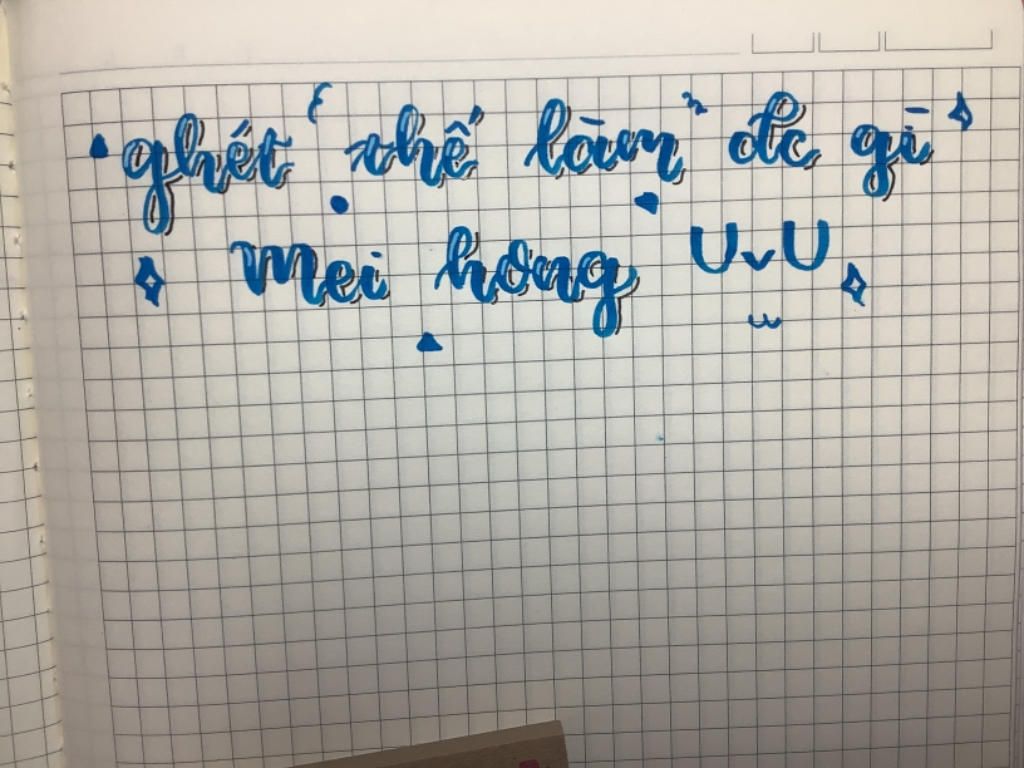 ghét thế làm đc gì
mei hong UvU